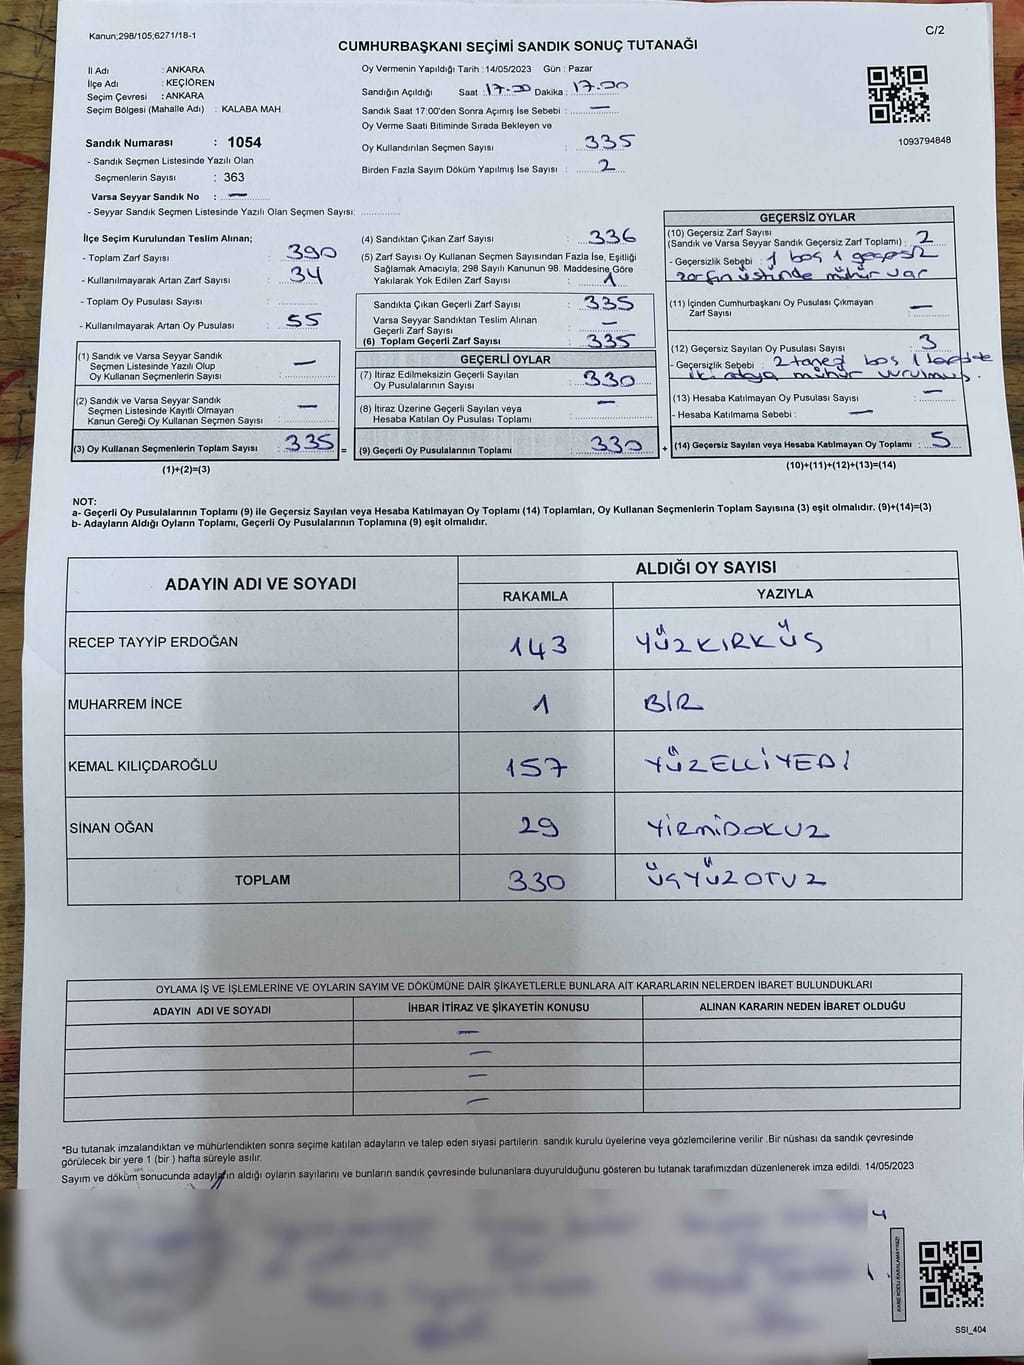 Kanun;298/105;6271/18-1
C/2
CUMHURBAŞKANI SEÇİMİ SANDIK SONUÇ TUTANAĞI
İl Adı : ANKARA
İlçe Adı : KEÇİÖREN
Seçim Çevresi : ANKARA
Seçim Bölgesi (Mahalle Adı) : KALABA MAH.
Sandık Numarası : 1054
- Sandık Seçmen Listesinde Yazılı Olan
Seçmenlerin Sayısı : 363
Varsa Seyyar Sandık No : —
- Seyyar Sandık Seçmen Listesinde Yazılı Olan Seçmen Sayısı: ............
Oy Vermenin Yapıldığı Tarih : 14/05/2023 Gün : Pazar
Sandığın Açıldığı Saat : 17.00 Dakika : 17.00
Sandık Saat 17:00'den Sonra Açımış İse Sebebi : —
Oy Verme Saati Bitiminde Sırada Bekleyen ve
Oy Kullandırılan Seçmen Sayısı : 335
Birden Fazla Sayım Döküm Yapılmış İse Sayısı : 2
1093794848
İlçe Seçim Kurulundan Teslim Alınan;
- Toplam Zarf Sayısı : 390
- Kullanılmayarak Artan Zarf Sayısı : 34
- Toplam Oy Pusulası Sayısı : ............
- Kullanılmayarak Artan Oy Pusulası : 55
(1) Sandık ve Varsa Seyyar Sandık
Seçmen Listesinde Yazılı Olup
Oy Kullanan Seçmenlerin Sayısı : —
(2) Sandık ve Varsa Seyyar Sandık
Seçmen Listesinde Kayıtlı Olmayan
Kanun Gereği Oy Kullanan Seçmen Sayısı : —
(3) Oy Kullanan Seçmenlerin Toplam Sayısı : 335 =
(1)+(2)=(3)
(4) Sandıktan Çıkan Zarf Sayısı : 336
(5) Zarf Sayısı Oy Kullanan Seçmen Sayısından Fazla İse, Eşitliği
Sağlamak Amacıyla; 298 Sayılı Kanunun 98. Maddesine Göre
Yakılarak Yok Edilen Zarf Sayısı : 1
Sandıkta Çıkan Geçerli Zarf Sayısı : 335
Varsa Seyyar Sandıktan Teslim Alınan
Geçerli Zarf Sayısı : —
(6) Toplam Geçerli Zarf Sayısı : 335
GEÇERLİ OYLAR
(7) İtiraz Edilmeksizin Geçerli Sayılan
Oy Pusulalarının Sayısı : 330
(8) İtiraz Üzerine Geçerli Sayılan veya
Hesaba Katılan Oy Pusulaları Toplamı : —
(9) Geçerli Oy Pusulalarının Toplamı : 330 +
GEÇERSİZ OYLAR
(10) Geçersiz Zarf Sayısı
(Sandık ve Varsa Seyyar Sandık Geçersiz Zarf Toplamı) : 2
- Geçersizlik Sebebi : 1 boş 1 geçersiz
zarfın üstünde mühür var
(11) İçinden Cumhurbaşkanı Oy Pusulası Çıkmayan
Zarf Sayısı : —
(12) Geçersiz Sayılan Oy Pusulası Sayısı : 3
- Geçersizlik Sebebi : 2 tanesi boş 1
iki adaya mühür vurulmuş.
(13) Hesaba Katılmayan Oy Pusulası Sayısı : —
- Hesaba Katılmama Sebebi : —
(14) Geçersiz Sayılan veya Hesaba Katılmayan Oy Toplamı : 5
(10)+(11)+(12)+(13)=(14)
NOT:
a- Geçerli Oy Pusulalarının Toplamı (9) ile Geçersiz Sayılan veya Hesaba Katılmayan Oy Toplamı (14) Toplamları, Oy Kullanan Seçmenlerin Toplam Sayısına (3) eşit olmalıdır. (9)+(14)=(3)
b- Adayların Aldığı Oyların Toplamı, Geçerli Oy Pusulalarının Toplamına (9) eşit olmalıdır.
ADAYIN ADI VE SOYADI
ALDIĞI OY SAYISI
RAKAMLA YAZIYLA
RECEP TAYYİP ERDOĞAN 143 YÜZKIRKÜÇ
MUHARREM İNCE 1 BİR
KEMAL KILIÇDAROĞLU 157 YÜZELLİYEDİ
SİNAN OĞAN 29 YİRMİDOKUZ
TOPLAM 330 ÜÇYÜZOTUZ
OYLAMA İŞ VE İŞLEMLERİNE VE OYLARIN SAYIM VE DÖKÜMÜNE DAİR ŞİKAYETLERLE BUNLARA AİT KARARLARIN NELERDEN İBARET BULUNDUKLARI
ADAYIN ADI VE SOYADI İHBAR İTİRAZ VE ŞİKAYETİN KONUSU ALINAN KARARIN NEDEN İBARET OLDUĞU
—
—
—
—
*Bu tutanak imzalandıktan ve mühürlendikten sonra seçime katılan adayların ve talep eden siyasi partilerin sandık kurulu üyelerine veya gözlemcilerine verilir .Bir nüshası da sandık çevresinde
görülecek bir yere 1 (bir ) hafta süreyle asılır.
Sayım ve döküm sonucunda adayların aldığı oyların sayılarını ve bunların sandık çevresinde bulunanlara duyurulduğunu gösteren bu tutanak tarafımızdan düzenlenerek imza edildi. 14/05/2023
KARE KODU KARALAMAYINIZ!
SSI_404